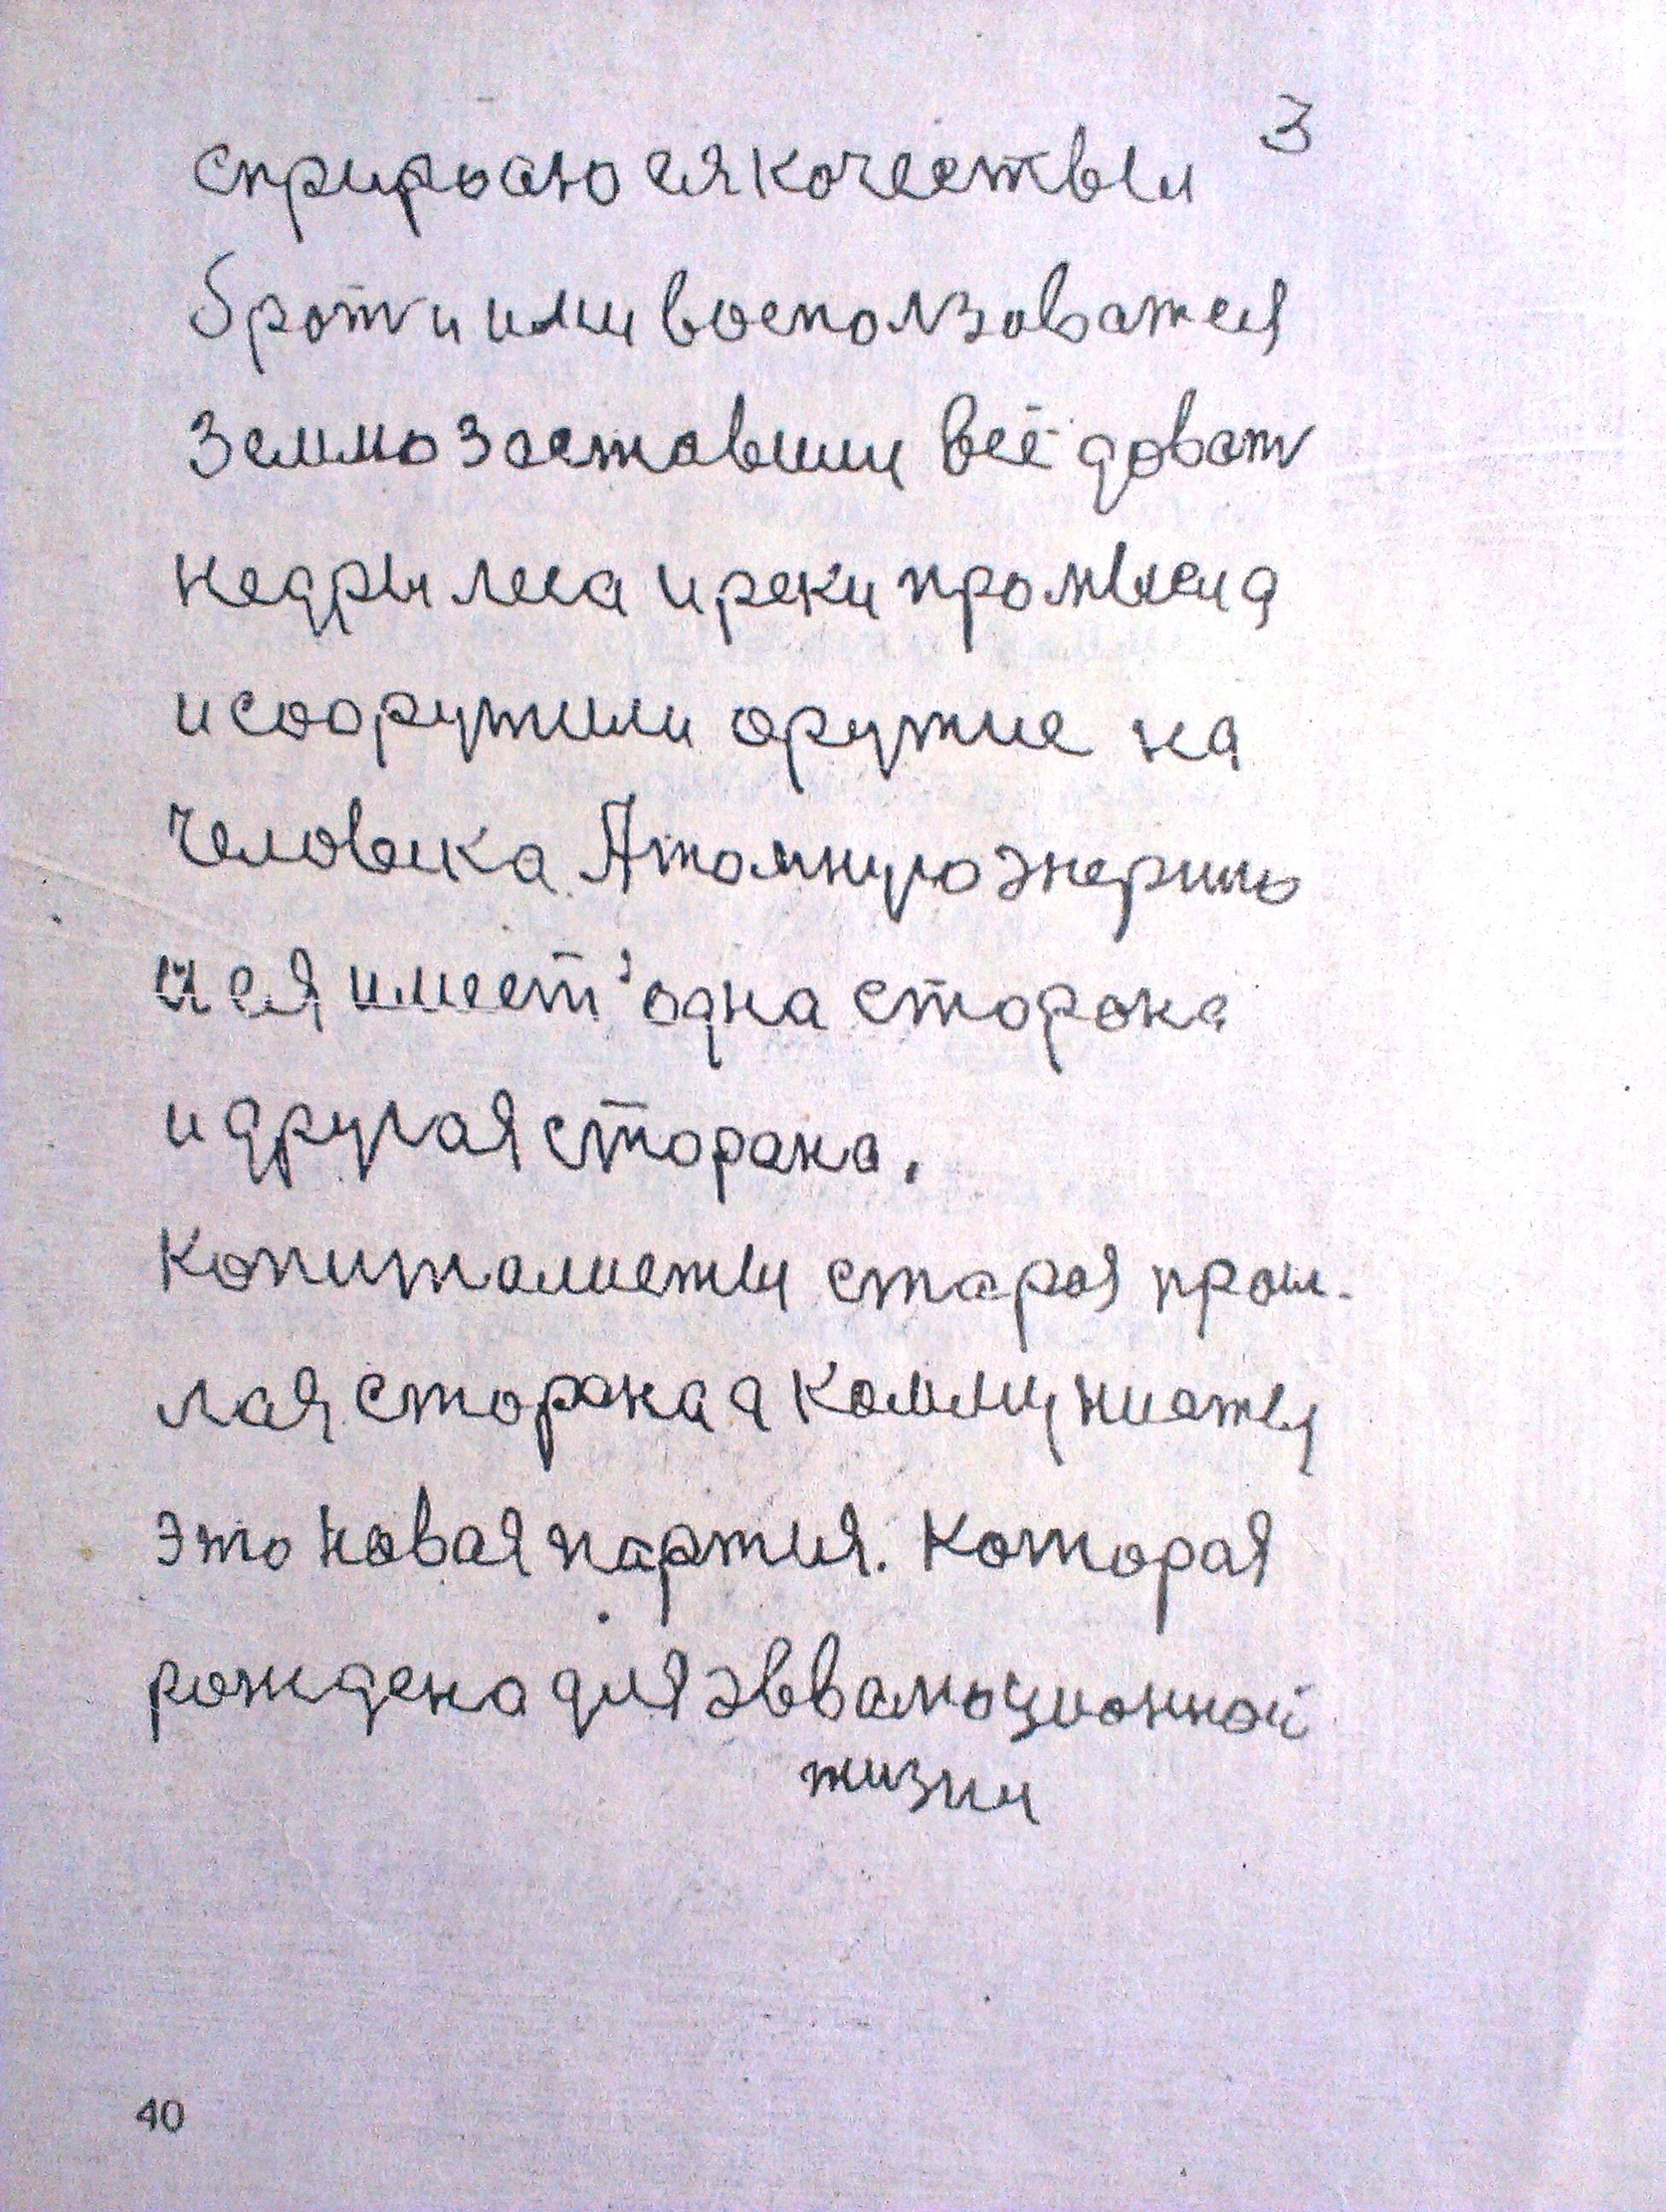 3
сприроаю ея качествы
брати ими восползоватся
Землю заставили всё доват
недры леса и реки промысла
и сооружили оружие на
человека Атомную энерию
и ея имеет одна сторона
и другая сторана.
Копиталисты старая прош-
лая сторона а Коммунисты
это новая партия. Которая
рождена для эввалюционной
жизни
40